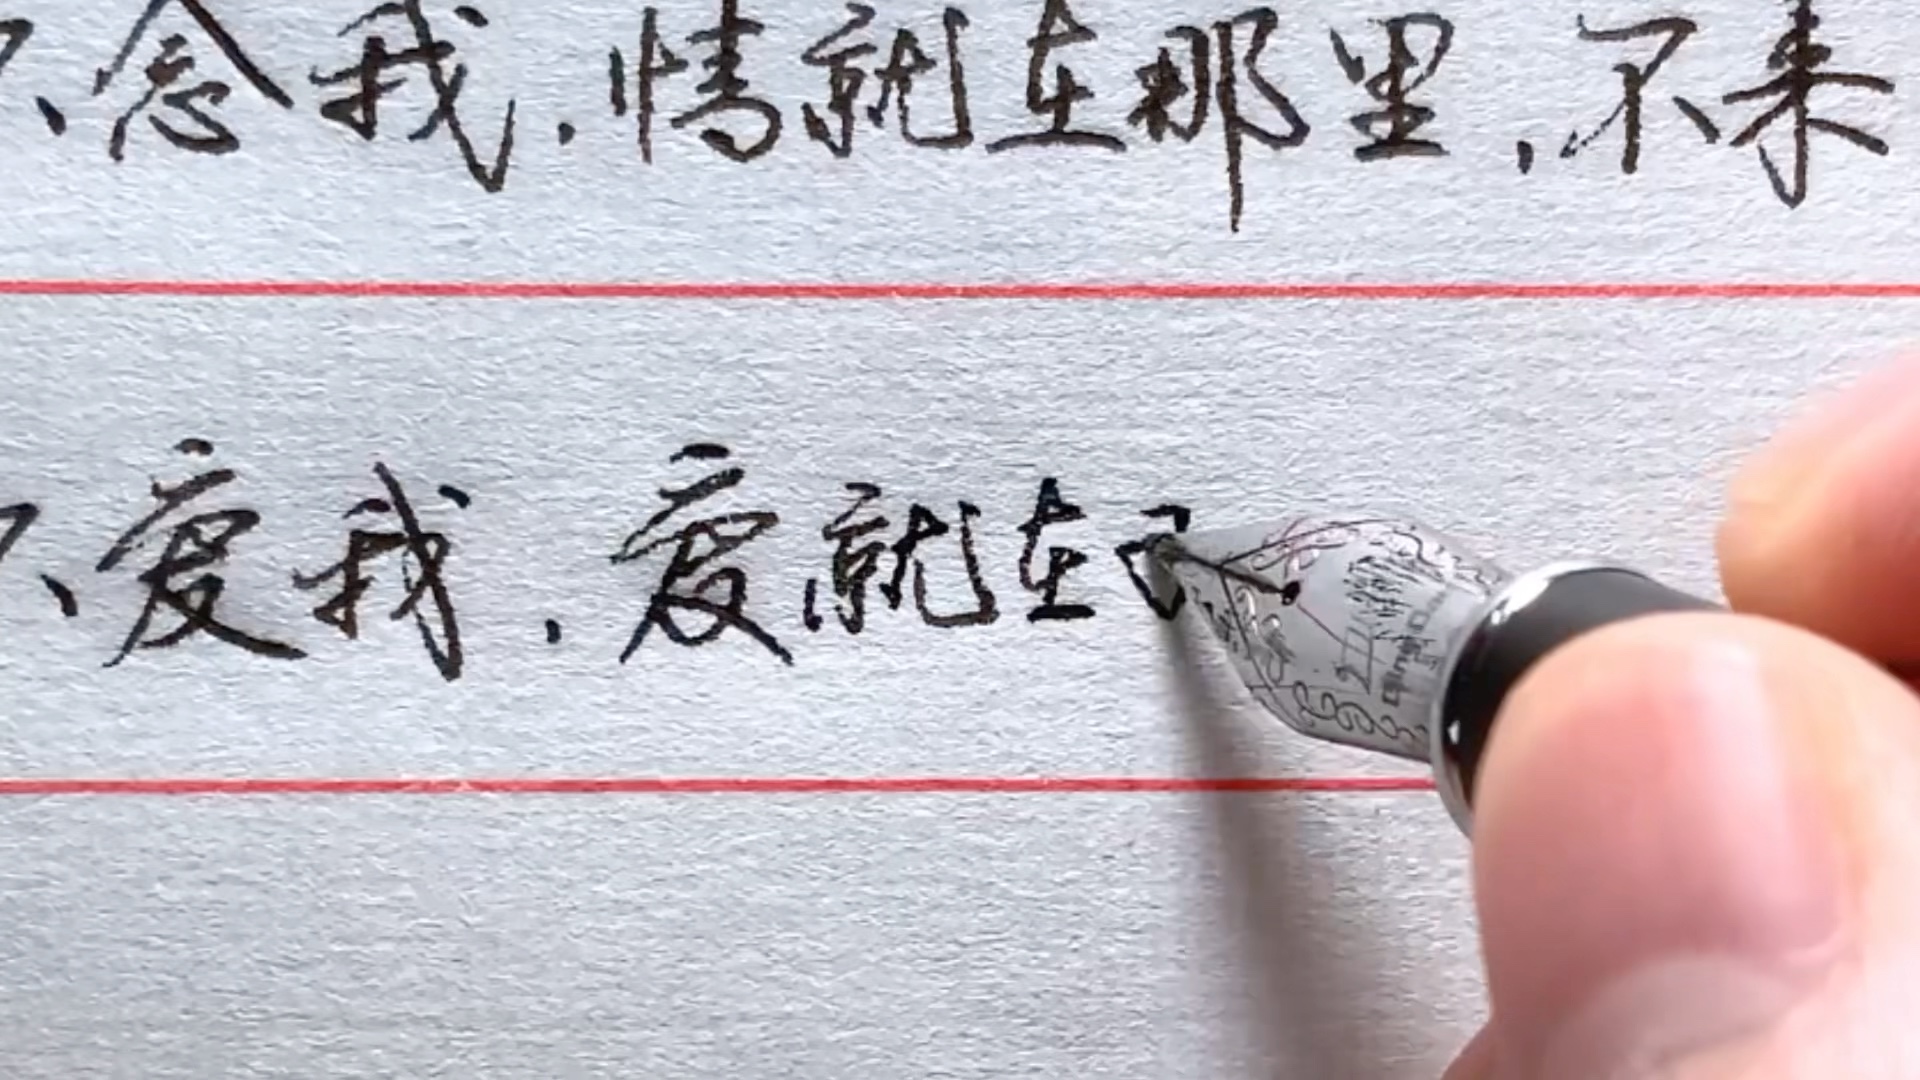 不念我，情就在那里，不来
不爱我，爱就在